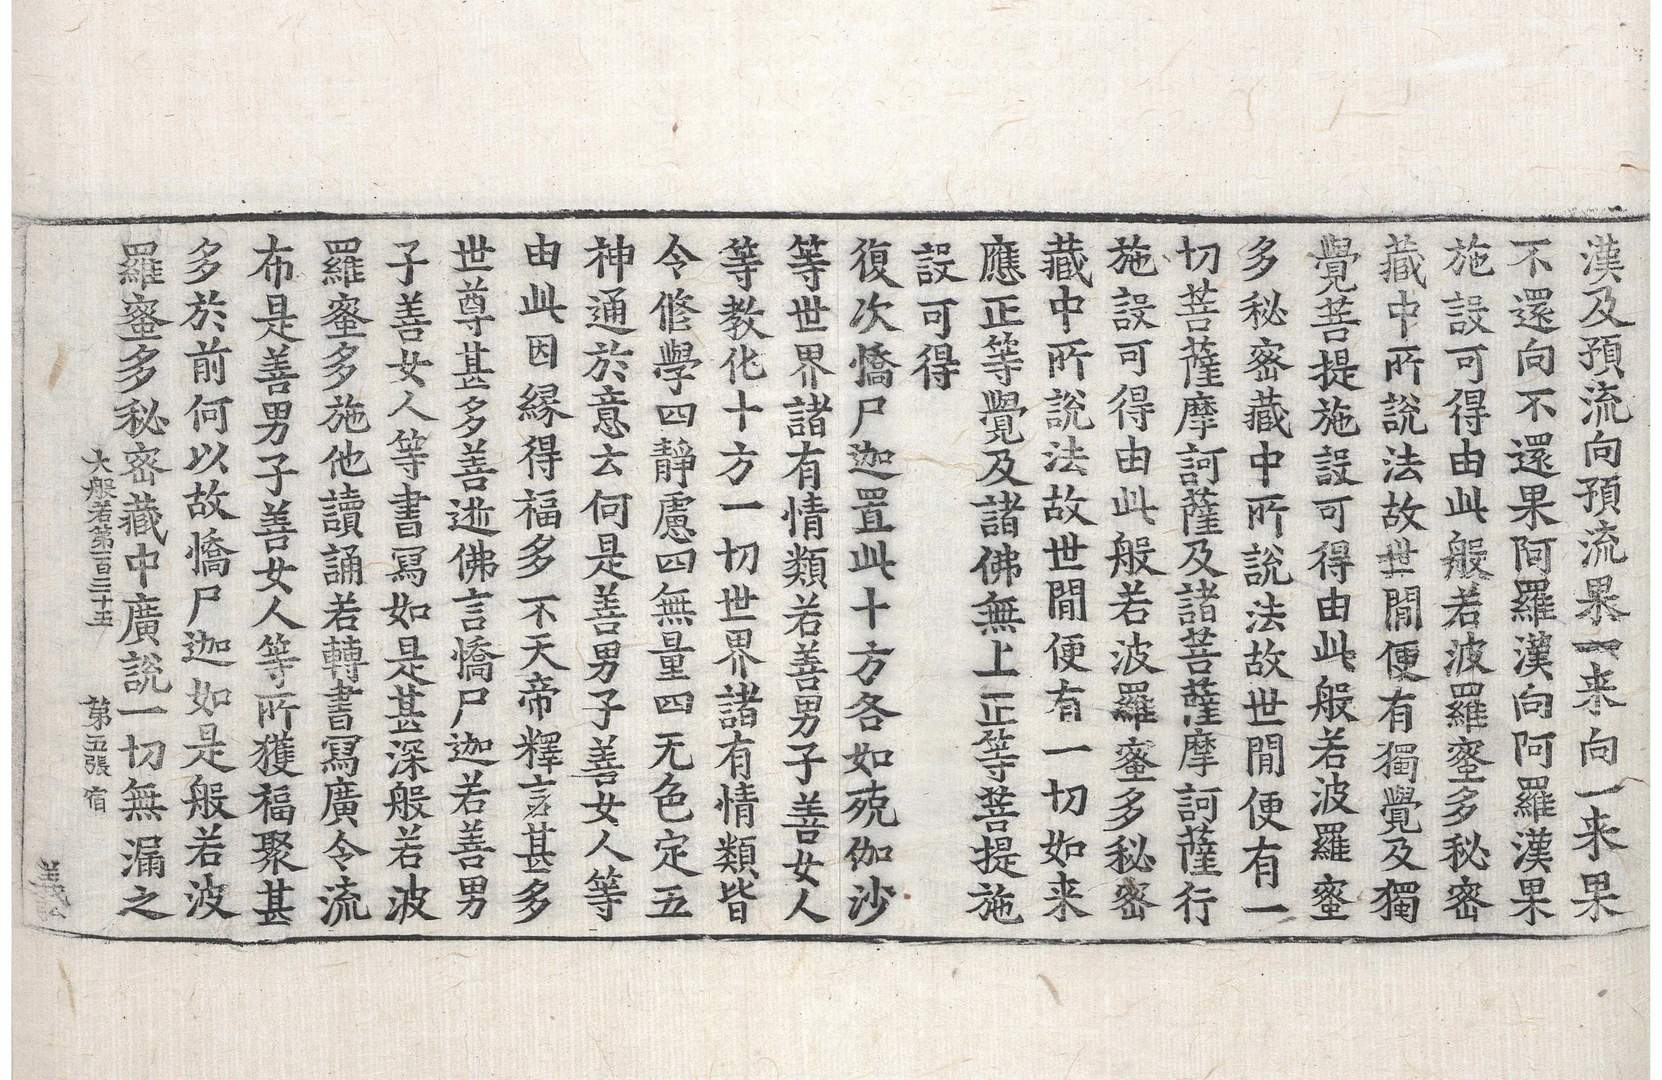 漢及預流向預流果一来向一来果
不還向不還果阿羅漢向阿羅漢果
施設可得由此般若波羅蜜多秘密
藏中所說法故世閒便有獨覺及獨
覺菩提施設可得由此般若波羅蜜
多秘密藏中所說法故世閒便有一
切菩薩摩訶薩及諸菩薩摩訶薩行
施設可得由此般若波羅蜜多秘密
藏中所說法故世閒便有一切如来
應正等覺及諸佛無上正等菩提施
設可得
復次憍尸迦置此十方各如殑伽沙
等世界諸有情類若善男子善女人
等教化十方一切世界諸有情類皆
令修學四靜慮四無量四无色定五
神通於意云何是善男子善女人等
由此因緣得福多不天帝釋言甚多
世尊甚多善逝佛言憍尸迦若善男
子善女人等書寫如是甚深般若波
羅蜜多施他讀誦若轉書寫廣令流
布是善男子善女人等所獲福聚甚
多於前何以故憍尸迦如是般若波
羅蜜多秘密藏中廣說一切無漏之
大般若第一百三十五 第五張 宿